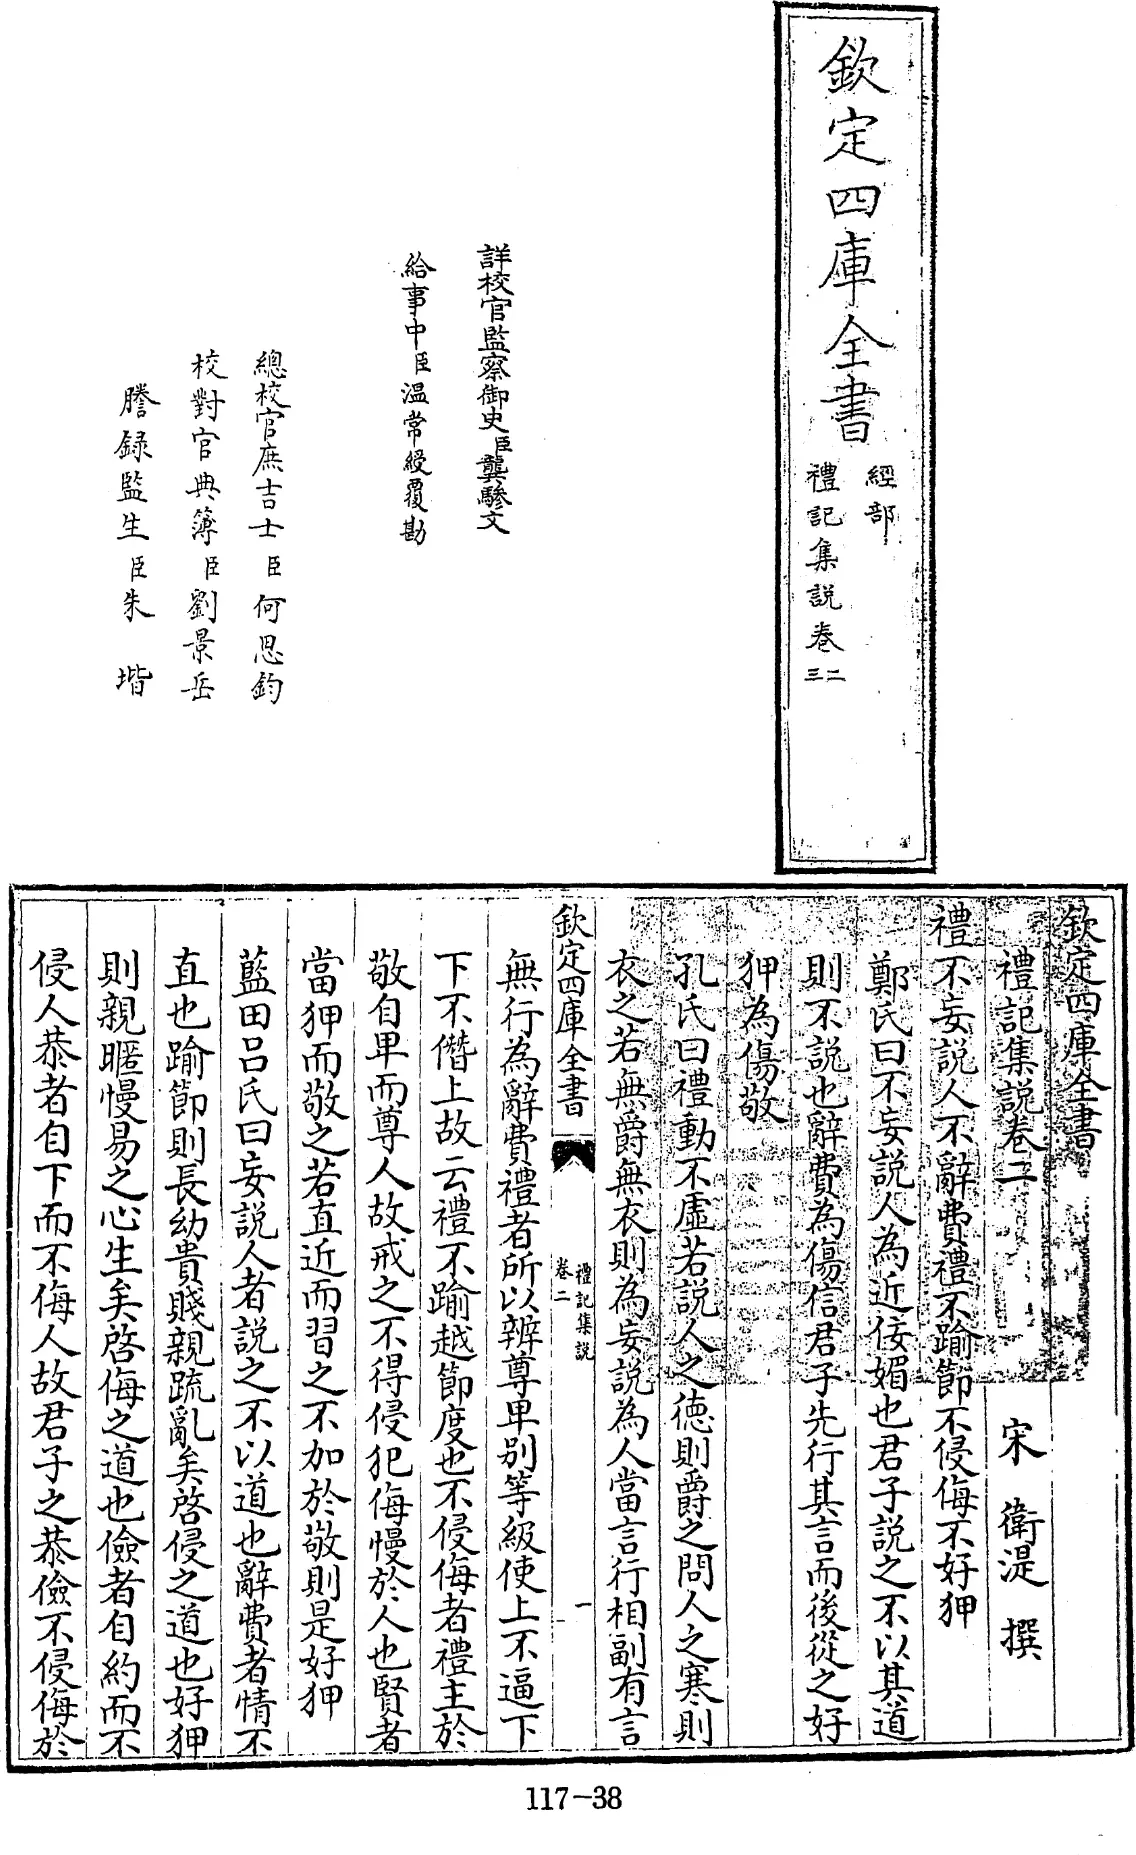 欽定四庫全書
經部
禮記集説卷二
三
詳校官監察御史臣龔驂文
給事中臣温常綬覆勘
總校官庶吉士臣何思鈞
校對官典簿臣劉景岳
謄録監生臣朱堦
欽定四庫全書
禮記集説卷二
宋 衛湜 撰
禮不妄説人不辭費禮不踰節不侵侮不好狎
鄭氏曰不妄説人為近佞媚也君子説之不以其道
則不説也辭費為傷信君子先行其言而後從之好
狎為傷敬
孔氏曰禮動不虚若説人之徳則爵之問人之寒則
衣之若無爵無衣則為妄説為人當言行相副有言
欽定四庫全書
禮記集説
卷二
一
無行為辭費禮者所以辨尊卑别等級使上不逼下
下不僭上故云禮不踰越節度也不侵侮者禮主於
敬自卑而尊人故戒之不得侵犯侮慢於人也賢者
當狎而敬之若直近而習之不加於敬則是好狎
藍田吕氏曰妄説人者説之不以道也辭費者情不
直也踰節則長幼貴賤親疏亂矣啓侵之道也好狎
則親暱慢易之心生矣啓侮之道也儉者自約而不
侵人恭者自下而不侮人故君子之恭儉不侵侮於
117-38